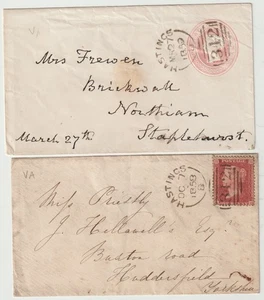 VJ
HASTINGS
312
Mrs Frewen
Brickwall
Northiam
Staplehurst
March 27th
VA
HASTINGS
1858
Miss Priestley
J. Hallewell's Esq
Buxton road
Huddersfield
Yorkshire